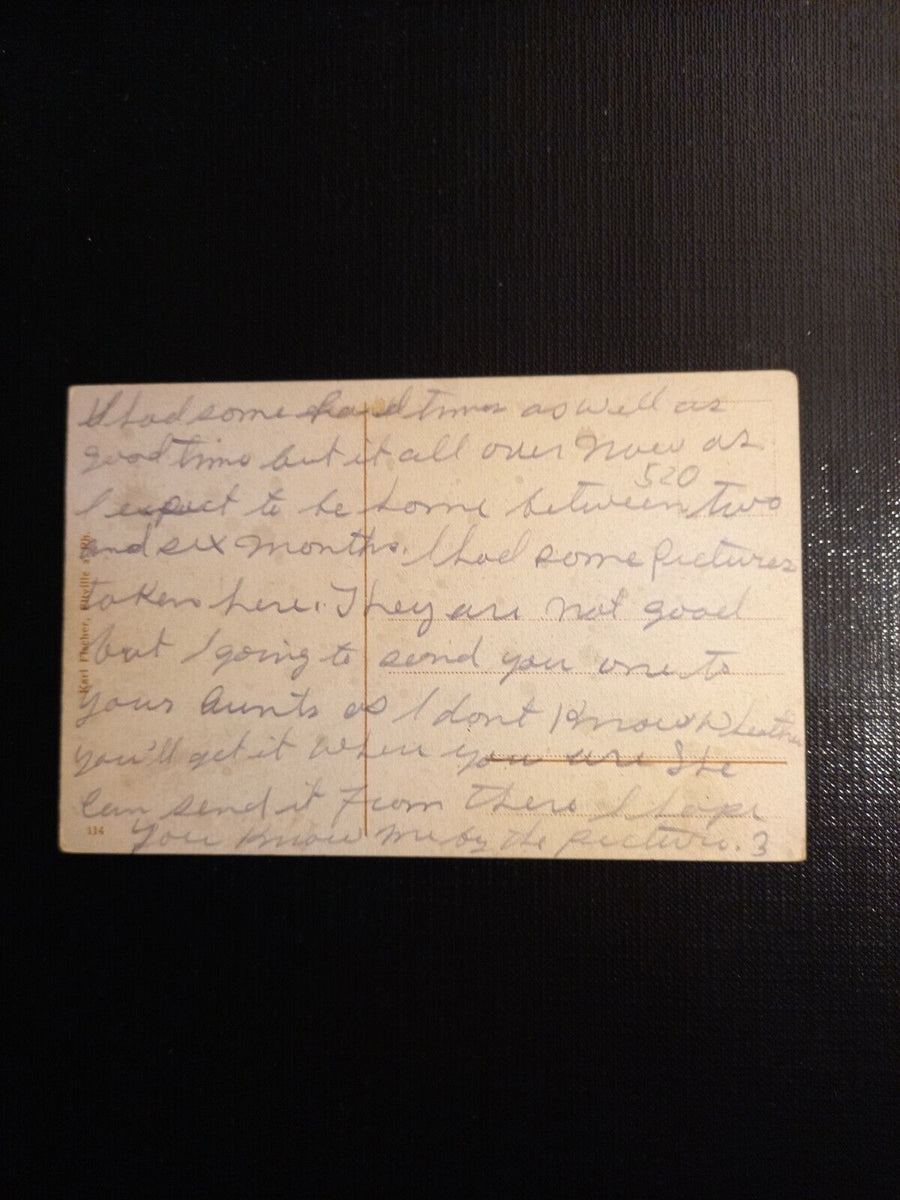 I had some hard times as well as
good time but it all over now as
520
I expect to be home between two
and six months. I had some pictures
taken here. They are not good
but I going to send you one to
your Aunts as I dont Know Wheather
you'll get it where you are She
Can send it From there I hope
you Know me by the picture. 3
Karl Fischer, Eltville a. Rh.
114